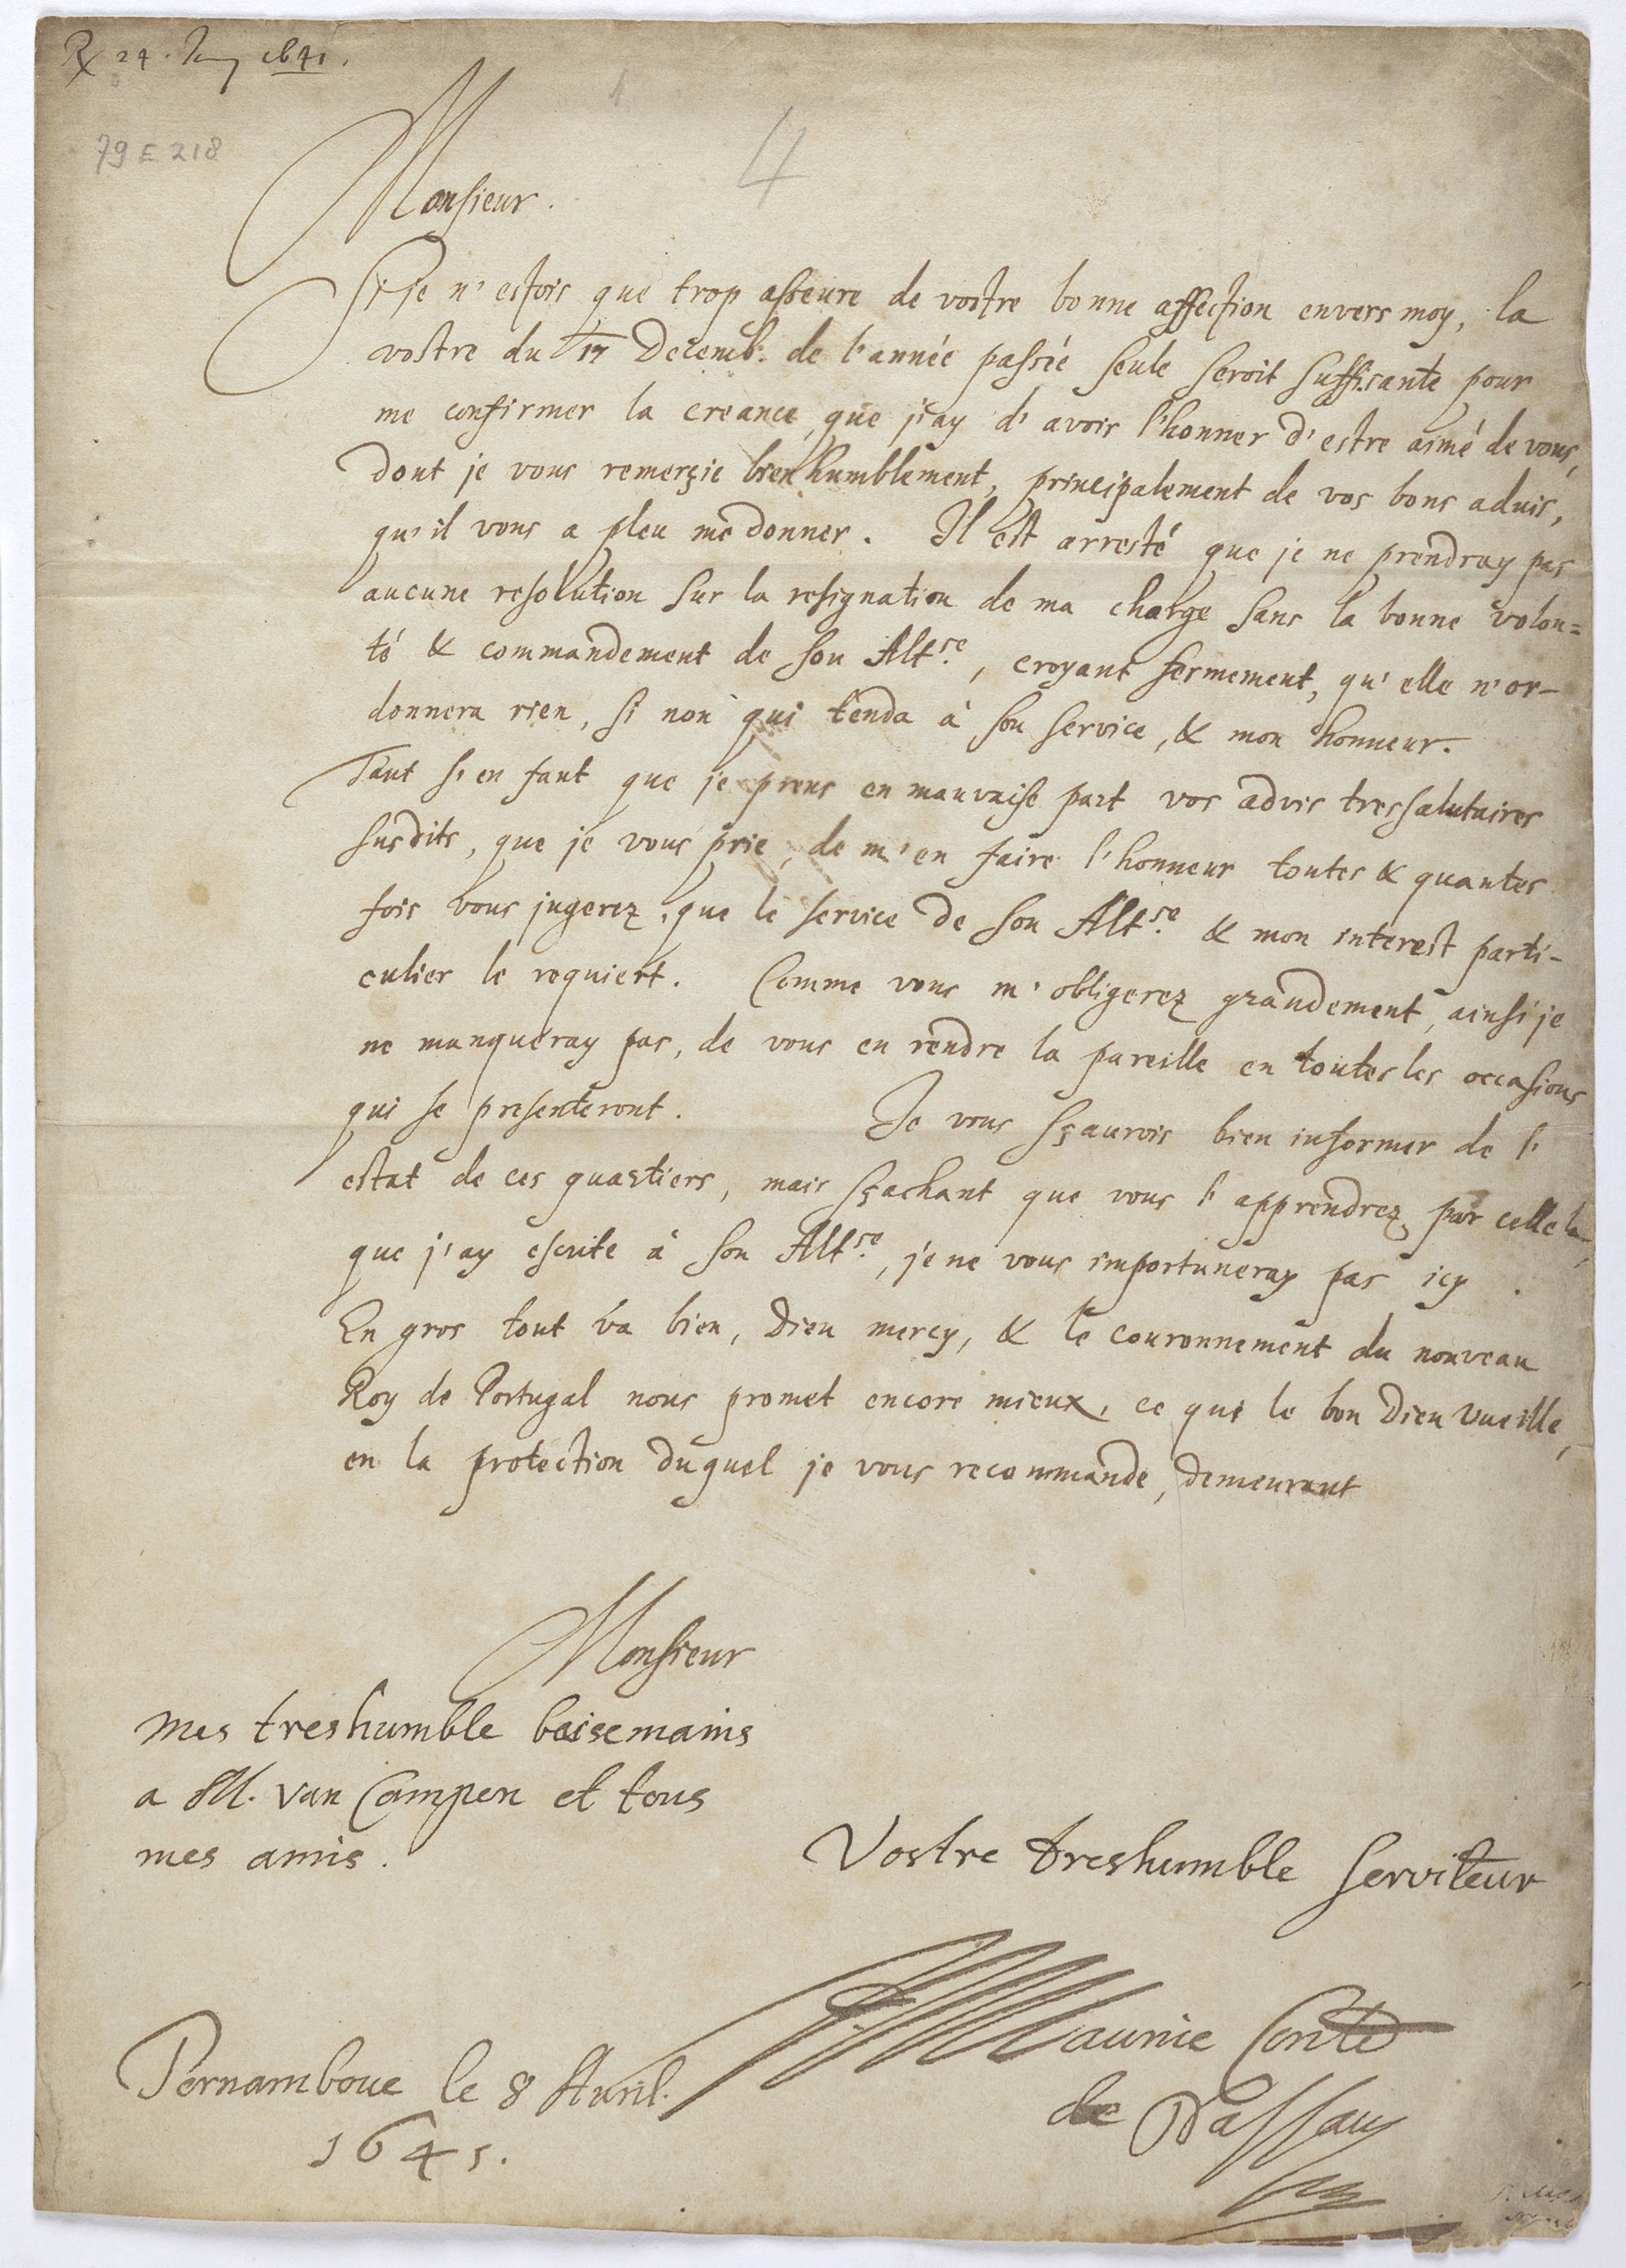 24. 1641.
79 E 218
4
Monsieur.
Si je n'estois que trop asseure de vostre bonne affection envers moy, la
vostre du 17 Decemb. de l'année passeé seule seroit suffisante pour
me confirmer la creance, que j'ay d'avoir l'honner d'estre aimé de vous,
dont je vous remerçie bien humblement, principalement de vos bons aduis,
qu'il vous a pleu me donner. Il est arresté que je ne prendray pas
aucune resolution sur la resignation de ma charge sans la bonne volon=
té & commandement de son Alt.se, croyant fermement, qu'elle n'or-
donnera rien, si non qui tenda à son service, & mon honneur.
Tant s'en faut que je prens en mauvaise part vos advis tressalutaires
susdits, que je vous prie, de m'en faire l'honneur toutes & quantes
fois vous jugerez, que le service de son Alt.se & mon interest parti-
culier le requiert. Comme vous m'obligerez grandement, ainsi je
ne manqueray pas, de vous en rendre la pareille en toutes les occasions
qui se presenteront. Je vous sçaurois bien informer de l'
estat de ces quartiers, mais sçachant que vous l'apprendrez par celle la,
que j'ay escrite à son Alt.se, je ne vous importuneray pas icy.
En gros tout va bien, Dieu mercy, & le couronnement du nouveau
Roy de Portugal nous promet encore mieux, ce que le bon Dieu vueille,
en la protection duquel je vous recommande, demeurant
Monsieur
Mes treshumble baisemains
a M. van Campen et tous
mes amis.
Vostre treshumble serviteur
J. Maurice Conte
de Nassau
Pernambouc le 8 Avril.
1641.